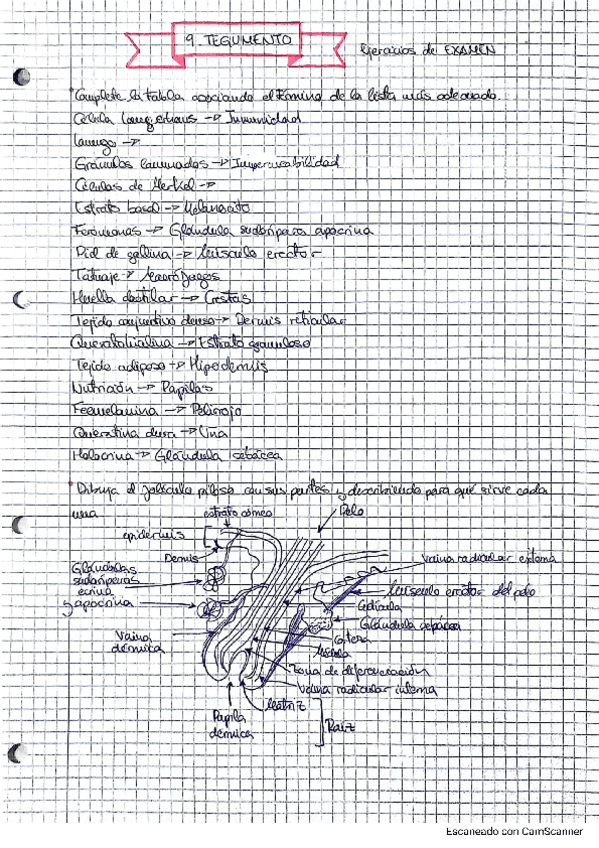 9. TEGUMENTO
Ejercicios de EXAMEN
Complete la tabla asociando el término de la lista más adecuado.
Célula Langerhans → Inmunidad
Lanugo →
Gránulos laminados → Impermeabilidad
Células de Merkel →
Estrato basal → Melanocito
Feromonas → Glándula sudorípara apocrina
Piel de gallina → Músculo erector
Tatuaje → Macrófagos
Huella dactilar → Crestas
Tejido conjuntivo denso → Dermis reticular
Queratohialina → Estrato granuloso
Tejido adiposo → Hipodermis
Nutrición → Papilas
Feomelanina → Pelirrojo
Queratina dura → Uña
Holocrina → Glándula sebácea
Dibuja el folículo piloso con sus partes y describiendo para qué sirve cada
una
estrato córneo
Pelo
epidermis
Dermis
Vaina radicular externa
Glándulas
sudoríparas
ecrina
y apocrina
Músculo erector del pelo
Cutícula
Glándula sebácea
Corteza
Vaina
dérmica
Médula
Zona de diferenciación
Vaina radicular interna
Matriz
Papila
dérmica
Raíz
Escaneado con CamScanner